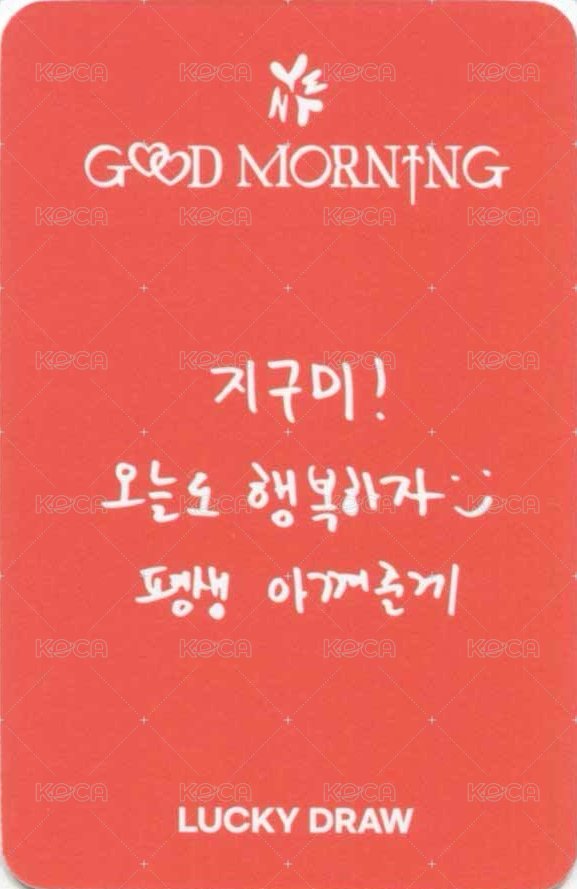 KOCA KOCA KOCA KOCA
YENA
GOOD MORNING
KOCA KOCA KOCA KOCA
KOCA KOCA KOCA KOCA
지구미!
오늘도 행복하자 :)
KOCA KOCA KOCA KOCA
평생 아껴줄게
KOCA KOCA KOCA KOCA
KOCA KOCA KOCA KOCA
LUCKY DRAW